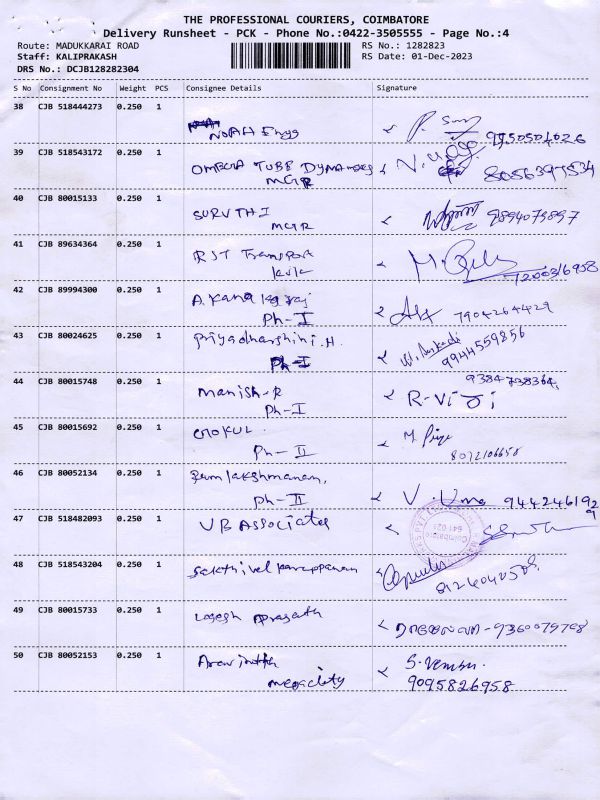 THE PROFESSIONAL COURIERS, COIMBATORE
Delivery Runsheet - PCK - Phone No.:0422-3505555 - Page No.:4
Route: MADUKKARAI ROAD RS No.: 1282823
Staff: KALIPRAKASH RS Date: 01-Dec-2023
DRS No.: DCJB128282304
S No Consignment No Weight PCS Consignee Details Signature
38 CJB 518444273 0.250 1
NOAH Engg
39 CJB 518543172 0.250 1 OMEGA TUBE DYNAMICS 8056397534
MGR
40 CJB 80015133 0.250 1 SURUTHI 9894079897
MGR
41 CJB 89634364 0.250 1 RJT Transport
42 CJB 89994300 0.250 1 A. Kanakaraj 7904264429
Ph-I
43 CJB 80024625 0.250 1 Priyadharshini.H 9944559856
Ph-I
44 CJB 80015748 0.250 1 Manish-R 9384738364
Ph-I
45 CJB 80015692 0.250 1 GOKUL M. Priya
Ph-II 8072106658
46 CJB 80052134 0.250 1 Ramlakshmanan,
Ph-II V. Uma 9442461929
47 CJB 518482093 0.250 1 VB Associates
48 CJB 518543204 0.250 1 Sakthivel Karuppanan
49 CJB 80015733 0.250 1 Logesh Prasath
50 CJB 80052153 0.250 1 Aravindth
9095826958